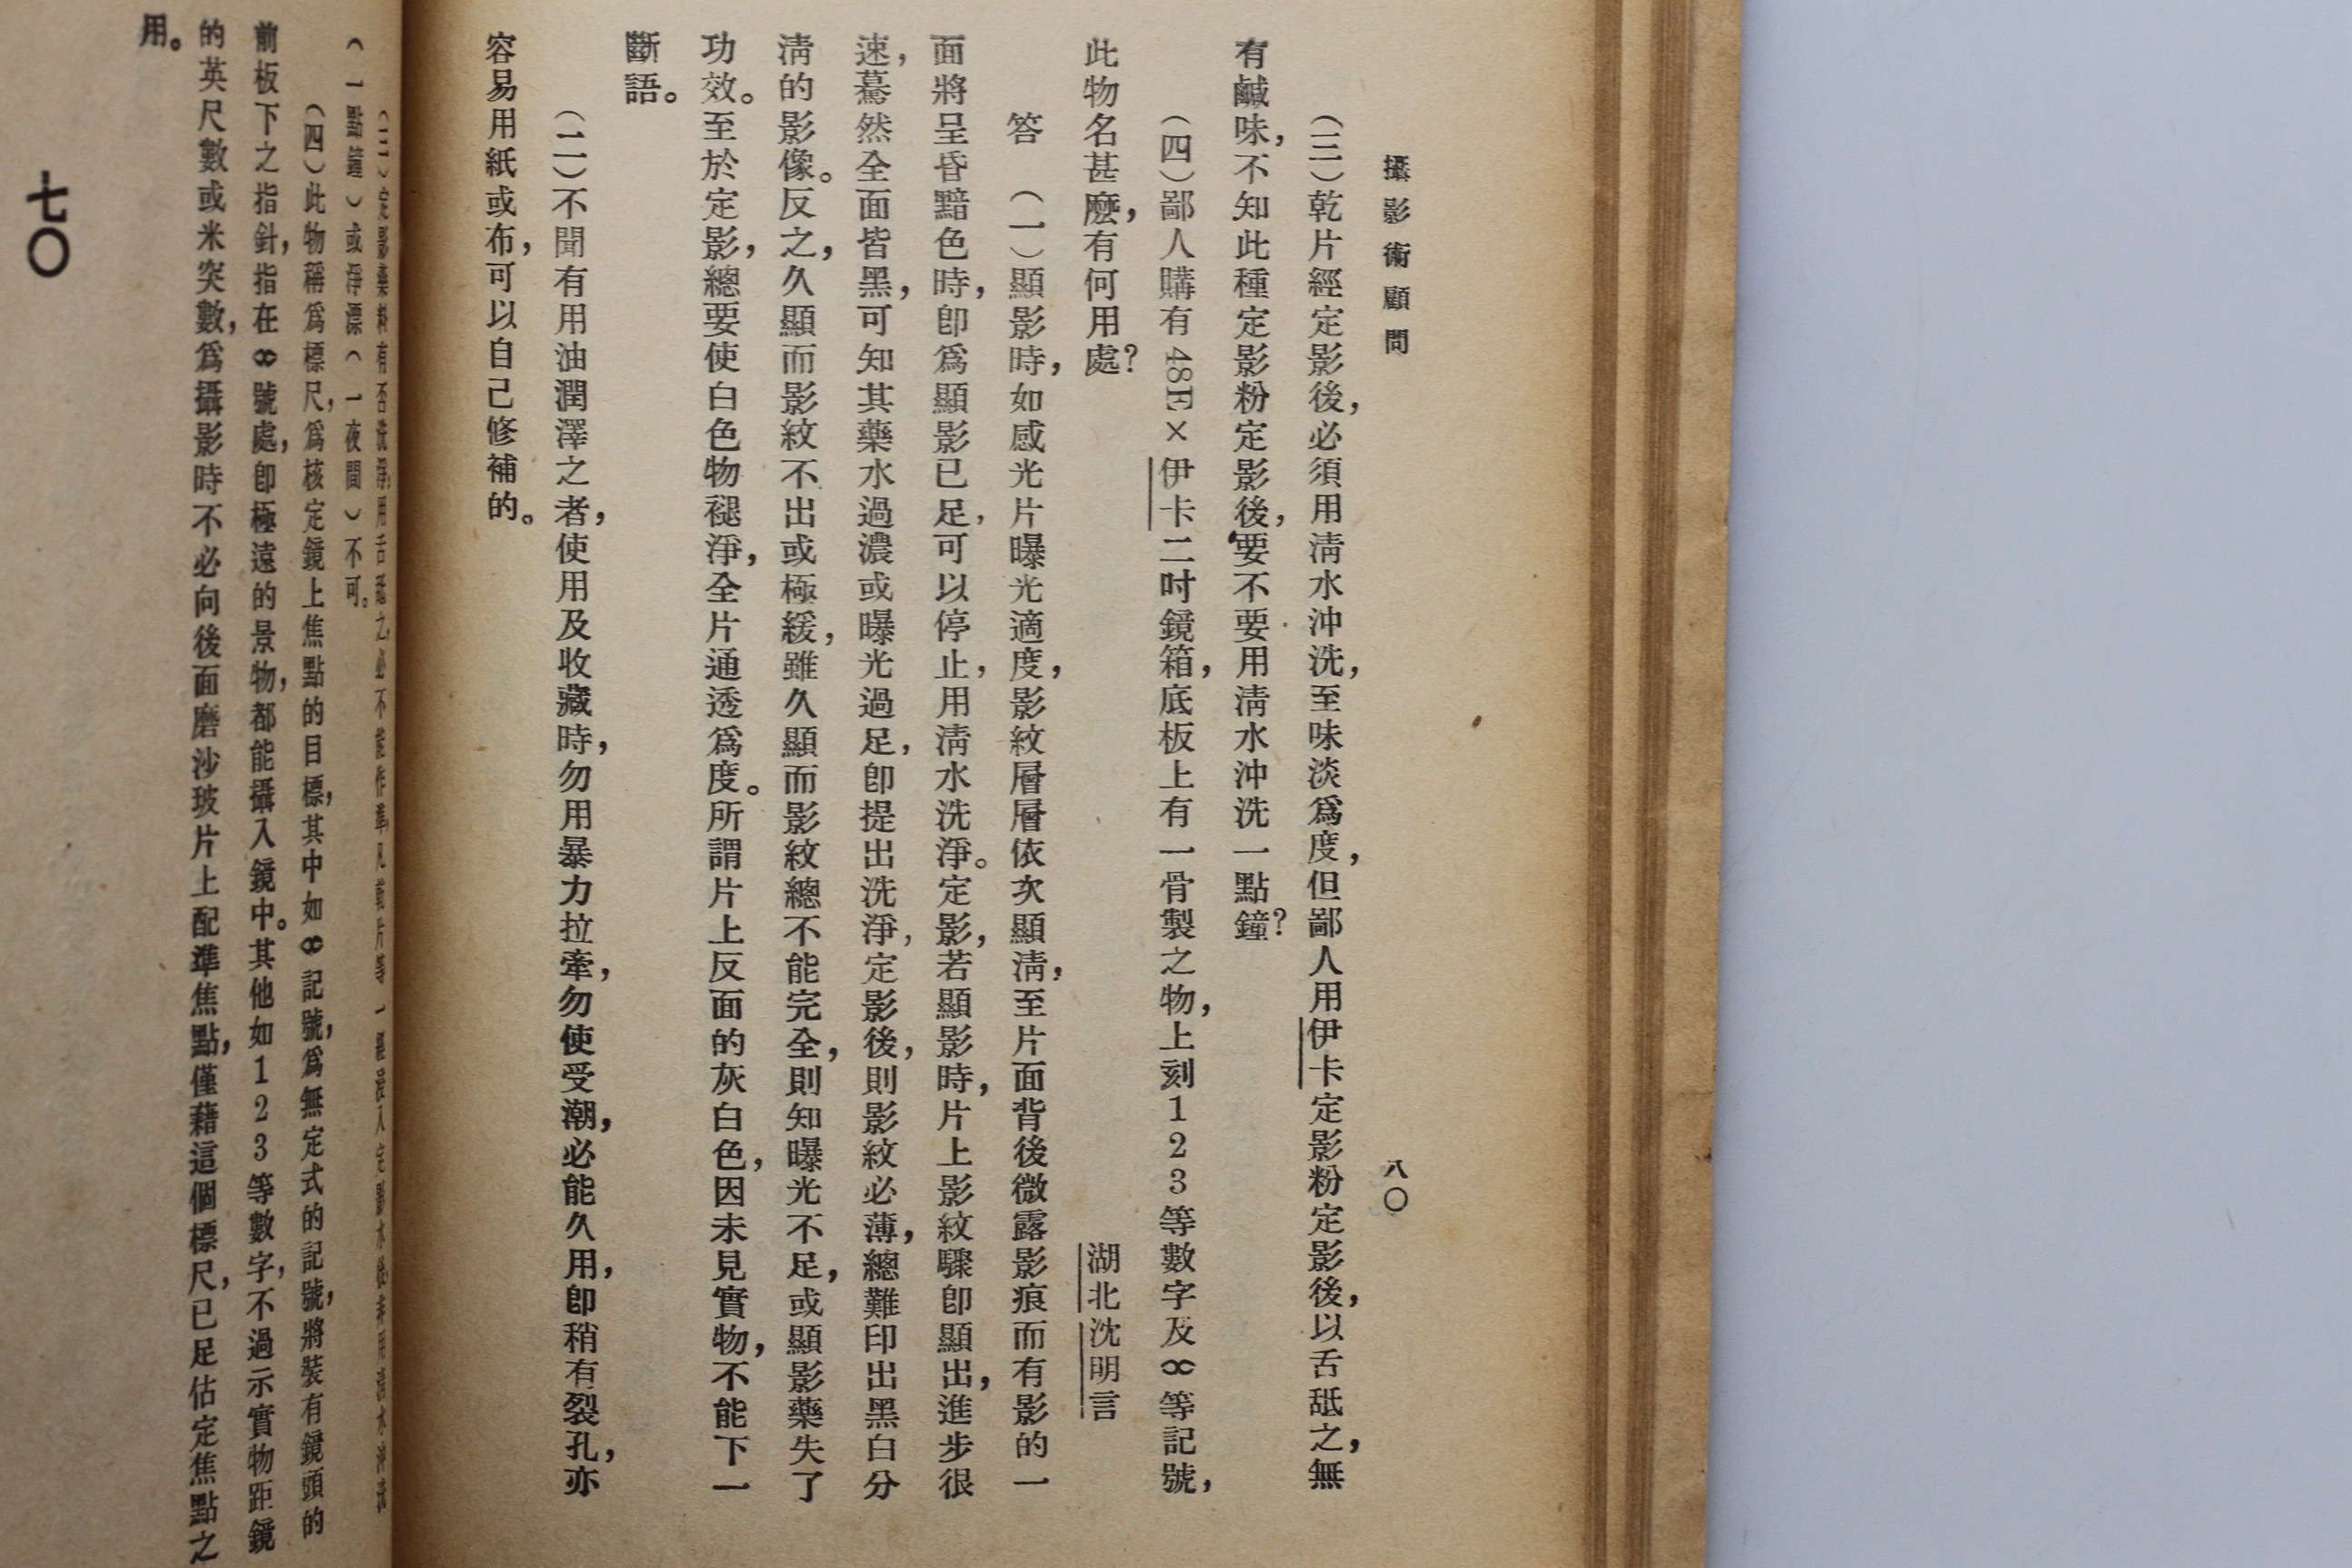 攝影術顧問
八〇
（三）乾片經定影後，必須用淸水沖洗，至味淡爲度，但鄙人用伊卡定影粉定影後，以舌舐之，無
有鹹味，不知此種定影粉定影後，要不要用淸水沖洗一點鐘？
（四）鄙人購有48E×伊卡二吋鏡箱，底板上有一骨製之物，上刻123等數字及∞等記號，
此物名甚麼，有何用處？
湖北沈明言
答　（一）顯影時，如感光片曝光適度，影紋層層依次顯淸，至片面背後微露影痕而有影的一
面將呈昏黯色時，卽爲顯影已足，可以停止，用淸水洗淨。定影，若顯影時，片上影紋驟卽顯出，進步很
速，驀然全面皆黑，可知其藥水過濃或曝光過足，卽提出洗淨，定影後，則影紋必薄，總難印出黑白分
淸的影像。反之，久顯而影紋不出或極緩，雖久顯而影紋總不能完全，則知曝光不足，或顯影藥失了
功效。至於定影，總要使白色物褪淨，全片通透爲度。所謂片上反面的灰白色，因未見實物，不能下一
斷語。
（二）不聞有用油潤澤之者，使用及收藏時，勿用暴力拉牽，勿使受潮，必能久用，卽稍有裂孔，亦
容易用紙或布，可以自己修補的。
（三）定影藥料有否洗淨，用舌舐之，必不能作準，凡乾片等一經浸入定影水後，非用淸水沖洗
（一點鐘）或淨漂（一夜間）不可。
（四）此物稱爲標尺，爲核定鏡上焦點的目標，其中如∞記號，爲無定式的記號，將裝有鏡頭的
前板下之指針，指在∞號處，卽極遠的景物，都能攝入鏡中。其他如123等數字，不過示實物距鏡
的英尺數或米突數，爲攝影時不必向後面磨沙玻片上配準焦點，僅藉這個標尺，已足估定焦點之
用。
七〇